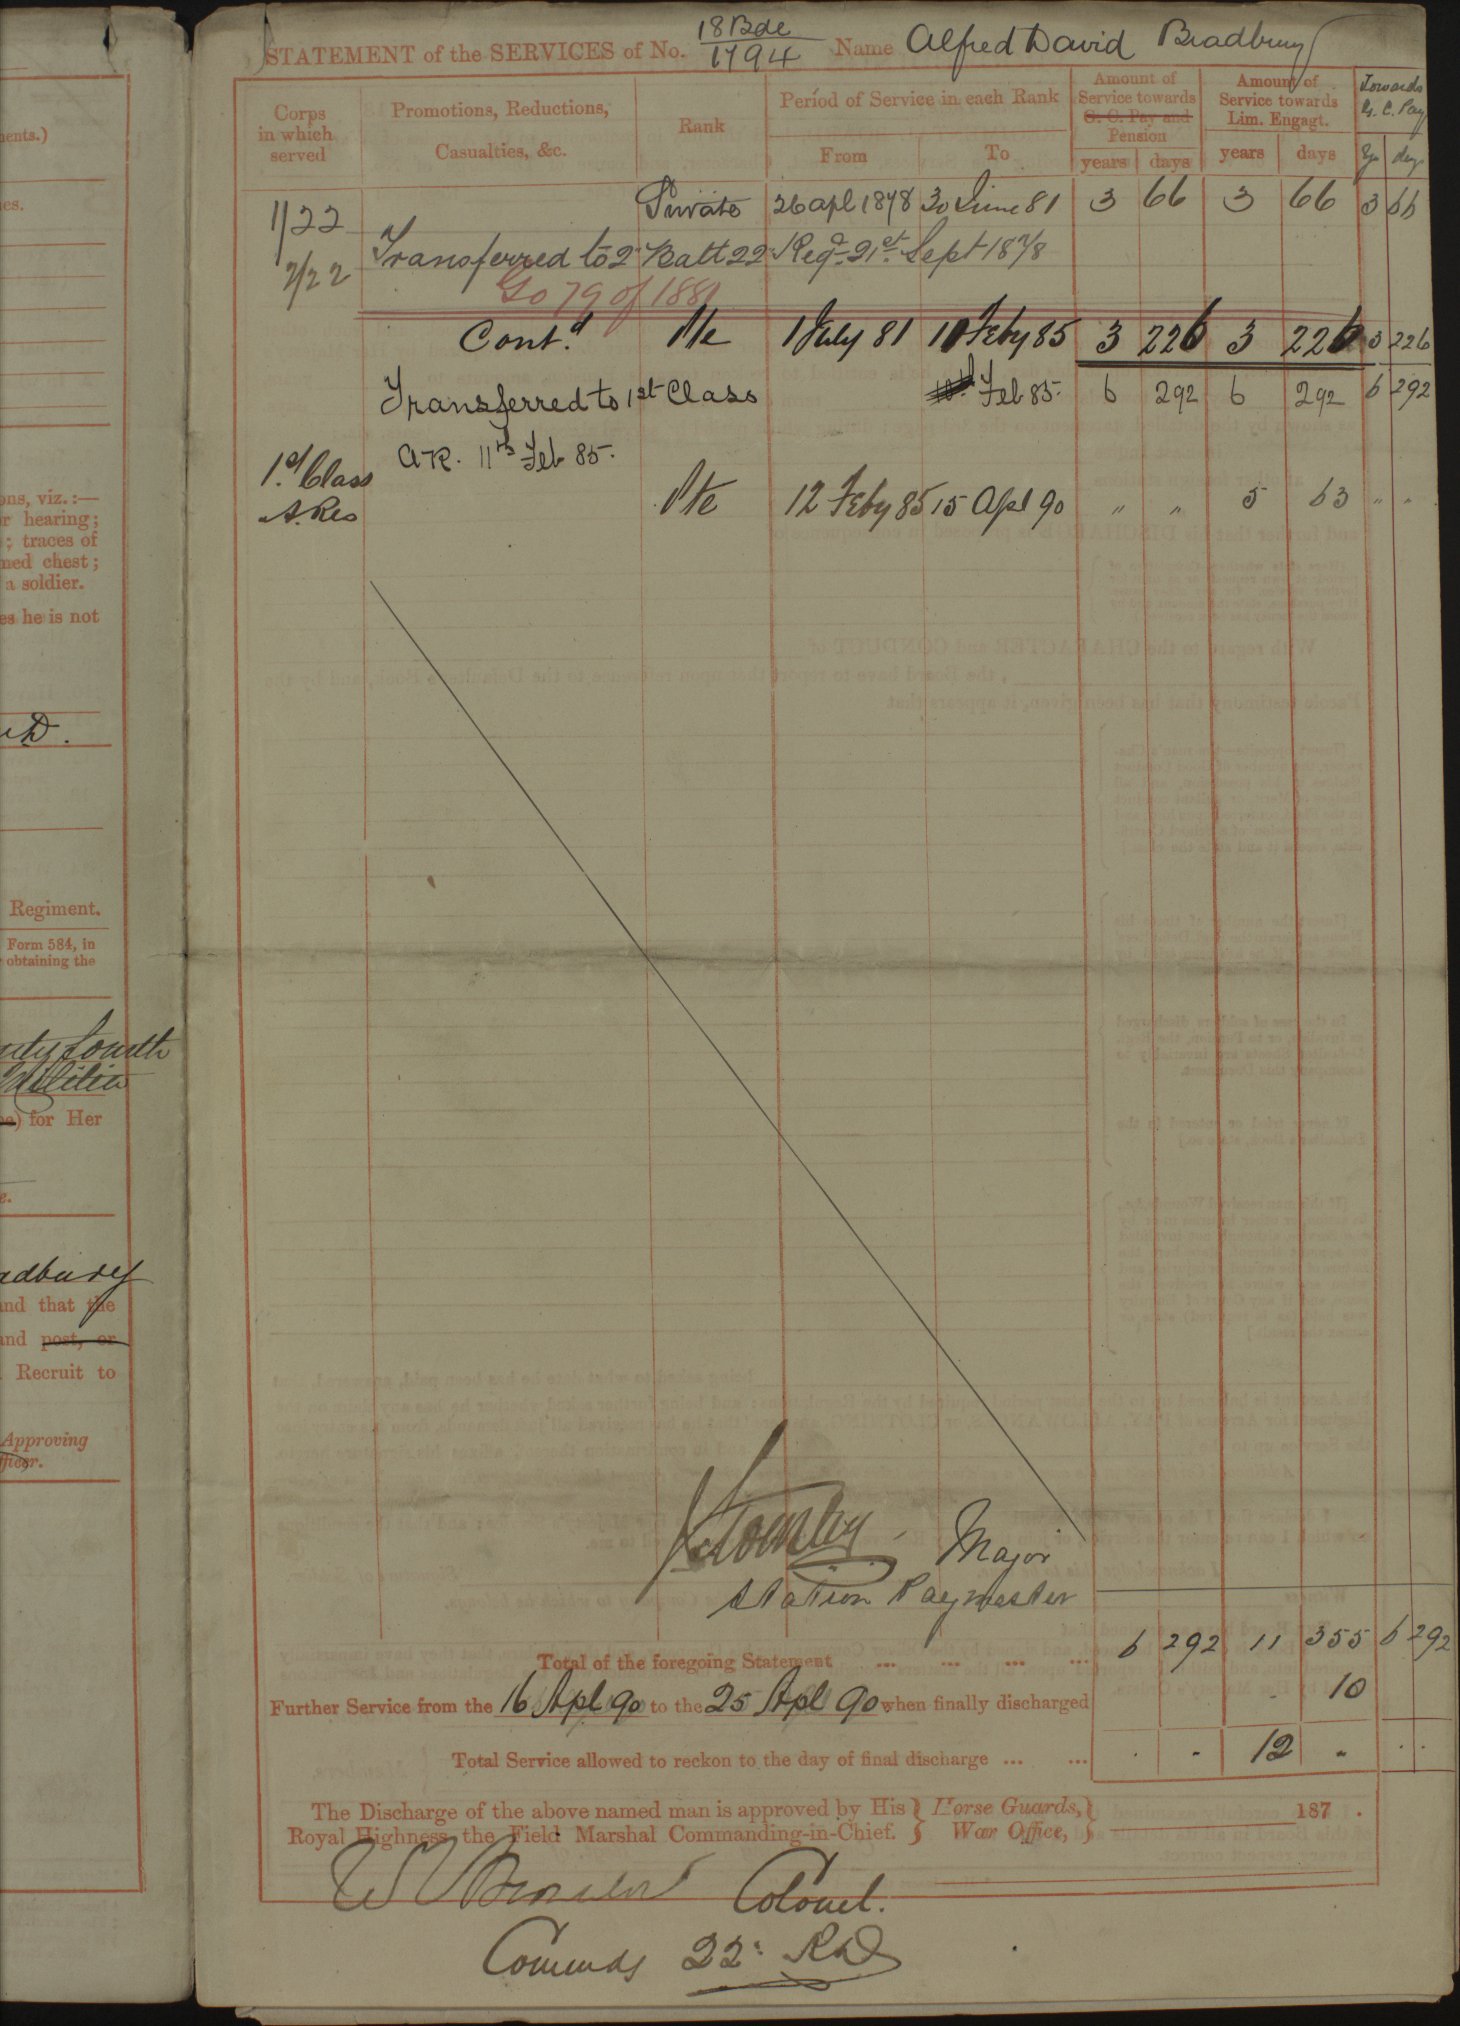 ents.)
es.
ons, viz.:—
r hearing;
; traces of
med chest;
a soldier.
es he is not
Regiment.
Form 584, in
obtaining the
fourth
Militia
for Her
e.
adbury
and that the
and post, or
Recruit to
Approving
fficer.
STATEMENT of the SERVICES of No. 18 Bde / 1794 Name Alfred David Bradbury
Corps in which served
Promotions, Reductions, Casualties, &c.
Rank
Period of Service in each Rank
From To
Amount of Service towards G. C. Pay and Pension
years days
Amount of Service towards Lim. Engagt.
years days
Towards G. C. Pay
Yrs days
1/22 Private 26 apl 1878 30 June 81 3 66 3 66 3 66
2/22 Transferred to 2 Batt 22 Regt 21st Sept 1878
Go 79 of 1881
Contd Pte 1 July 81 10 Feby 85 3 226 3 226 3 226
Transferred to 1st Class Feb 85. 6 292 6 292 6 292
AR. 11th Feb 85.
1st Class
A. Res Pte 12 Feby 85 15 Apl 90 " " 5 63 " "
Major
Station Paymaster
Total of the foregoing Statement ... ... ... ... 6 292 11 355 6 292
Further Service from the 16 Apl 90 to the 25 Apl 90 when finally discharged . 10
Total Service allowed to reckon to the day of final discharge ... ... . . 12 . . .
The Discharge of the above named man is approved by His } Horse Guards, } 187 .
Royal Highness the Field Marshal Commanding-in-Chief. } War Office, }
Colonel.
Commdg 22d R.D.